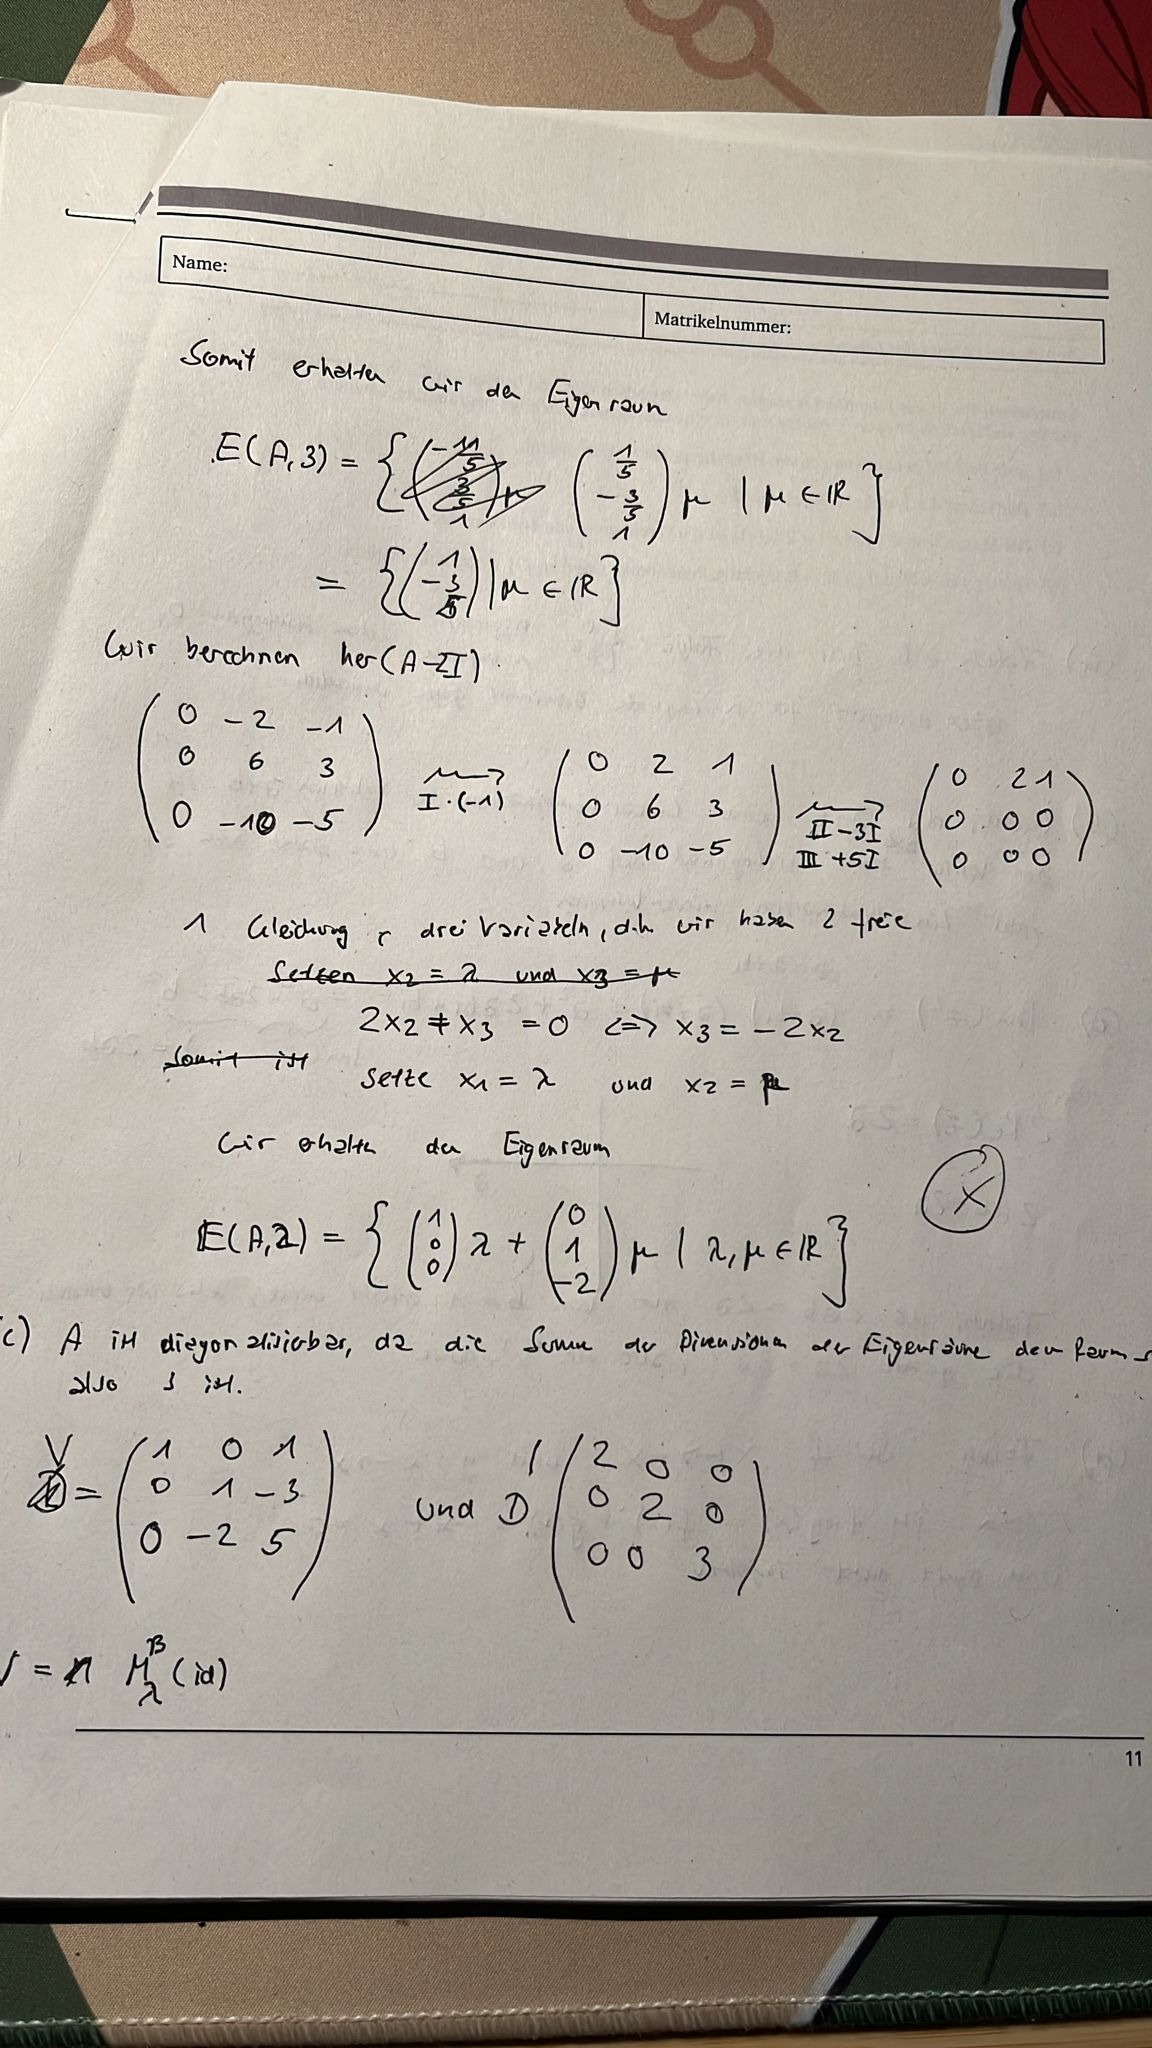 Name:
Matrikelnummer:
Somit erhalten wir den Eigenraum
E(A,3) = { (1/5, -3/5, 1) μ | μ ∈ ℝ }
= { (1, -3, 5) | μ ∈ ℝ }
Wir berechnen ker(A-2I).
( 0 -2 -1 ; 0 6 3 ; 0 -10 -5 ) ⟶ I·(-1) ( 0 2 1 ; 0 6 3 ; 0 -10 -5 ) ⟶ II-3I III+5I ( 0 2 1 ; 0 0 0 ; 0 0 0 )
1 Gleichung, drei Variabeln, d.h. wir haben 2 freie
Setzen x2 = λ und x3 = μ
2x2 + x3 = 0 <=> x3 = -2x2
Somit ist
Setze x1 = λ und x2 = μ
Wir erhalten den Eigenraum
X
E(A,2) = { (1, 0, 0) λ + (0, 1, -2) μ | λ, μ ∈ ℝ }
c) A ist diagonalisierbar, da die Summe der Dimensionen der Eigenräume dem Raum
also 3 ist.
V = ( 1 0 1 ; 0 1 -3 ; 0 -2 5 ) und D ( 2 0 0 ; 0 2 0 ; 0 0 3 )
V = M (id)
11